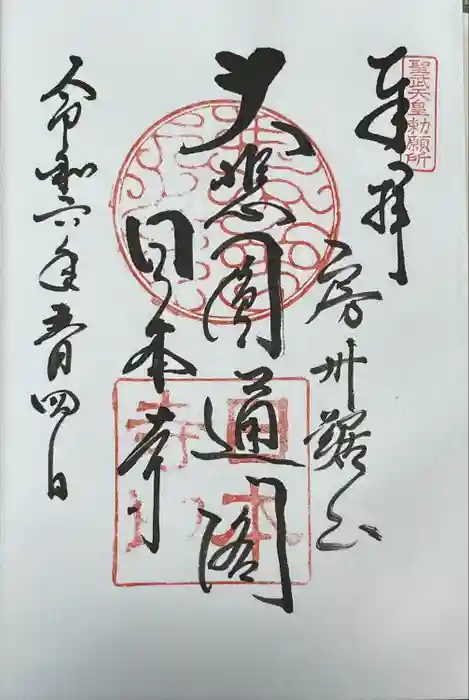 聖武天皇勅願所
奉拝
房州鋸山
大悲圓通閣
日本寺
令和六年五月四日